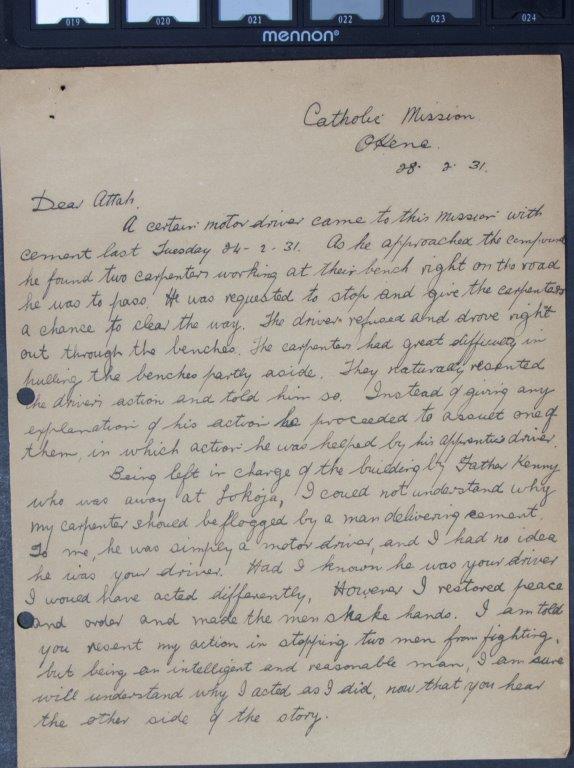 019 020 021 022 023 024
mennon®
Catholic Mission
Okene.
28. 2. 31.
Dear Attah,
A certain motor driver came to this Mission with
cement last Tuesday 24-2-31. As he approached the compound
he found two carpenters working at their bench right on the road
he was to pass. He was requested to stop and give the carpenters
a chance to clear the way. The driver refused and drove right
out through the benches. The carpenters had great difficulty in
pulling the benches partly aside. They naturally resented
the drivers action and told him so. Instead of giving any
explanation of his action he proceeded to assult one of
them, in which action he was helped by his apprentice driver.
Being left in charge of the building by Father Kenny
who was away at Lokoja, I could not understand why
my carpenter should be flogged by a man delivering cement.
To me, he was simply a motor driver, and I had no idea
he was your driver. Had I known he was your driver
I would have acted differently. However I restored peace
and order and made the men shake hands. I am told
you resent my action in stopping two men from fighting,
but being an intelligent and reasonable man, I am sure
will understand why I acted as I did, now that you hear
the other side of the story.